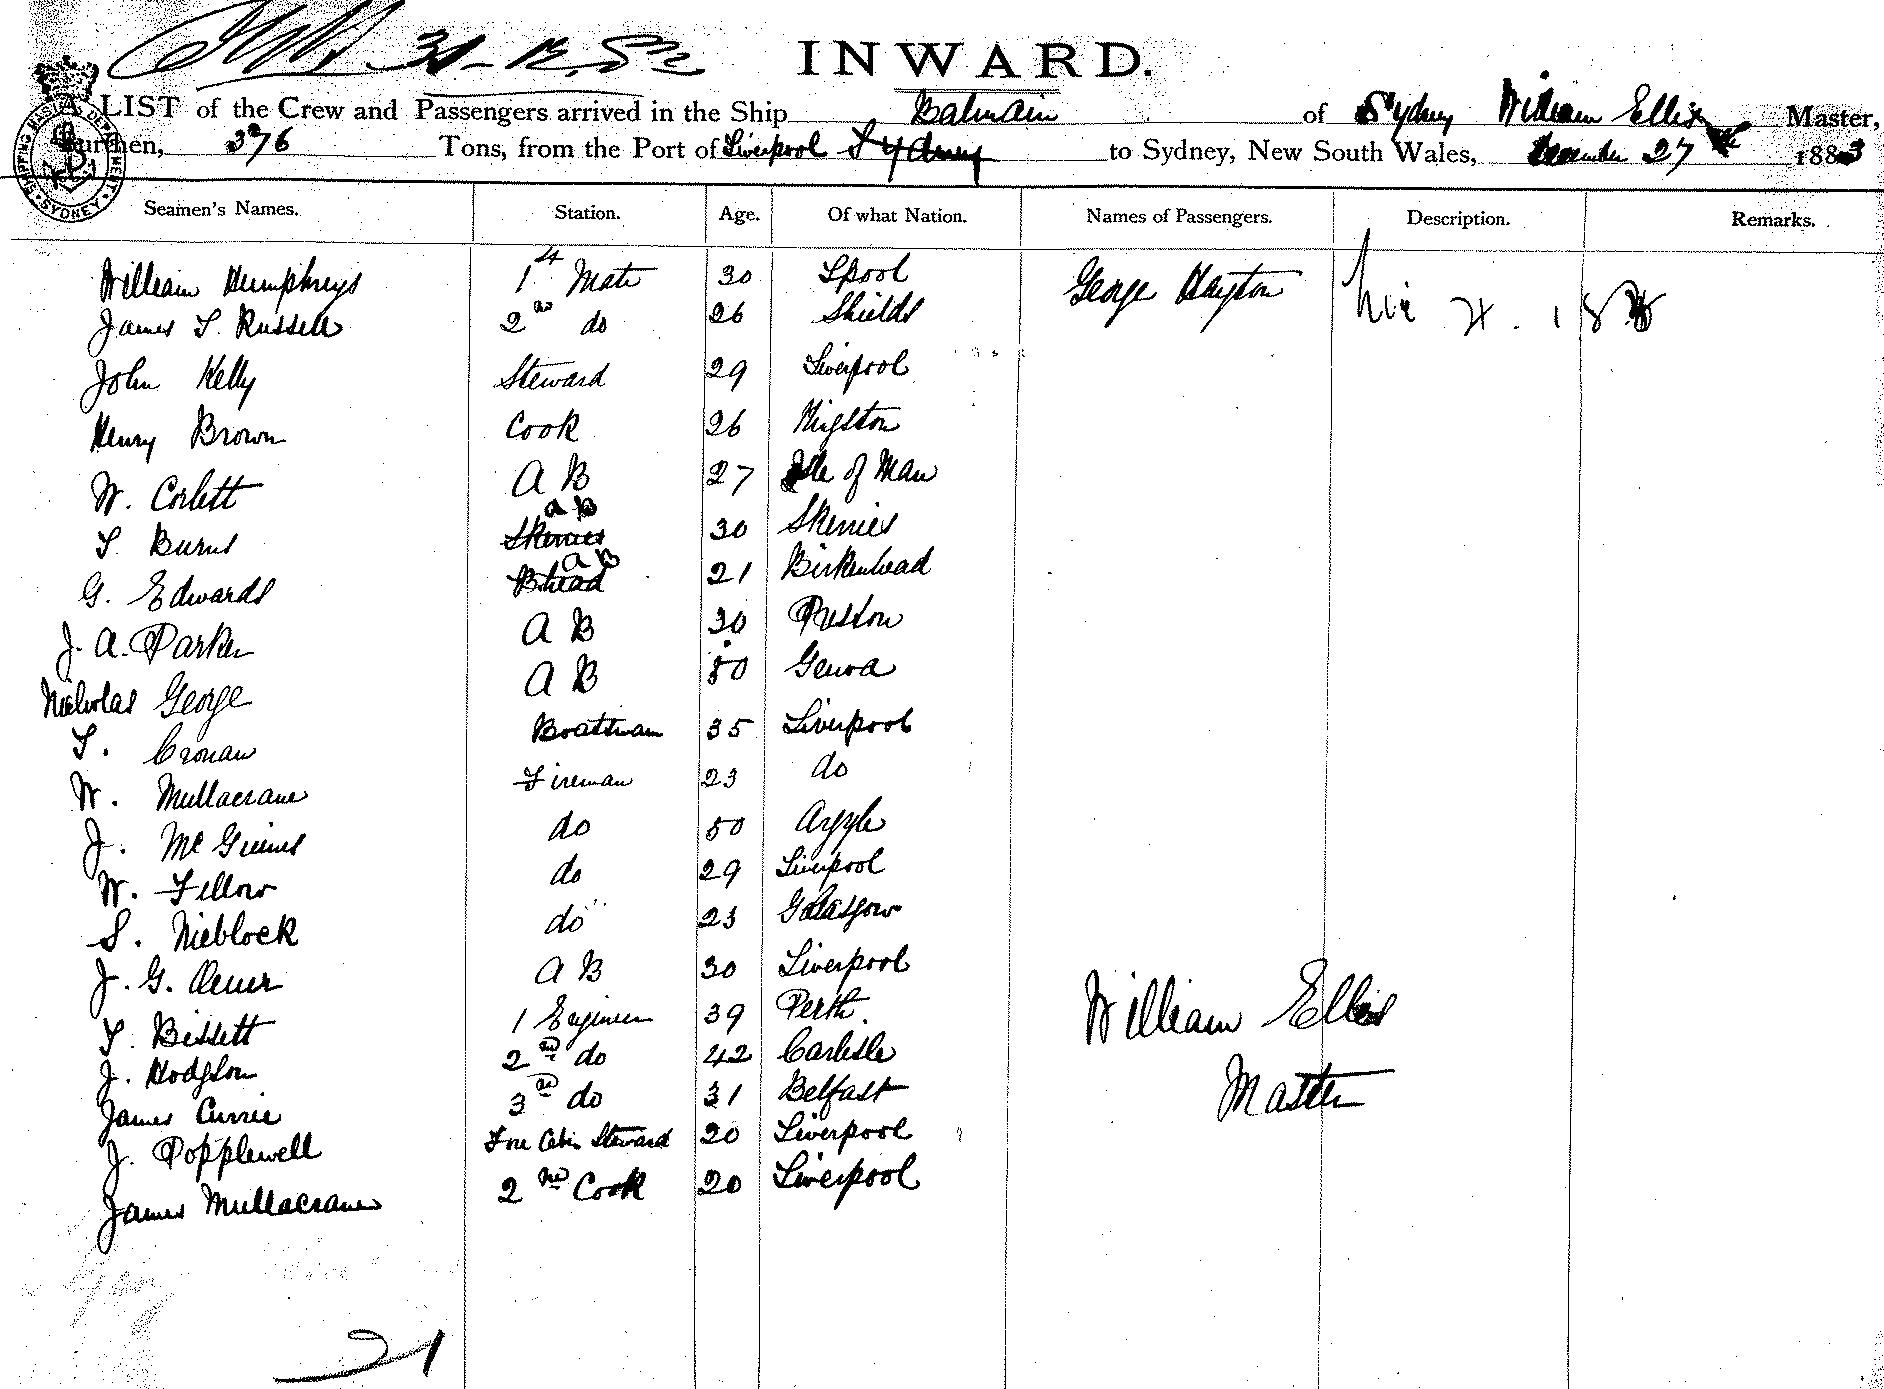 INWARD.
A LIST of the Crew and Passengers arrived in the Ship Balmain of Sydney William Ellis Master,
Burthen, 376 Tons, from the Port of Liverpool Sydney to Sydney, New South Wales, December 27 1883
SHIPPING MASTER'S DEPARTMENT SYDNEY
Seamen's Names. Station. Age. Of what Nation. Names of Passengers. Description. Remarks.
William Humphreys 1st Mate 30 Lpool George Hayton
James S. Russell 2nd do 26 Shields
John Kelly Steward 29 Liverpool
Henry Brown Cook 26 Kingston
W. Corlett A B 27 Isle of Man
T. Burns Skerries A B 30 Skerries
G. Edwards Bhead A B 21 Birkenhead
J. A. Parker A B 30 Preston
Nicholas George A B 50 Genoa
T. Cronan Boatswain 35 Liverpool
W. Mullacrane Fireman 23 do
J. Mc do 50 Argyle
W. Fillow do 29 Liverpool
S. Nieblock do 23 Glasgow
J. G. A B 30 Liverpool
T. Bissett 1 Engineer 39 Perth
J. Hodgson 2nd do 42 Carlisle
James Currie 3rd do 31 Belfast
J. Popplewell Fore Cabin Steward 20 Liverpool
James Mullacrane 2nd Cook 20 Liverpool
William Ellis
Master
21